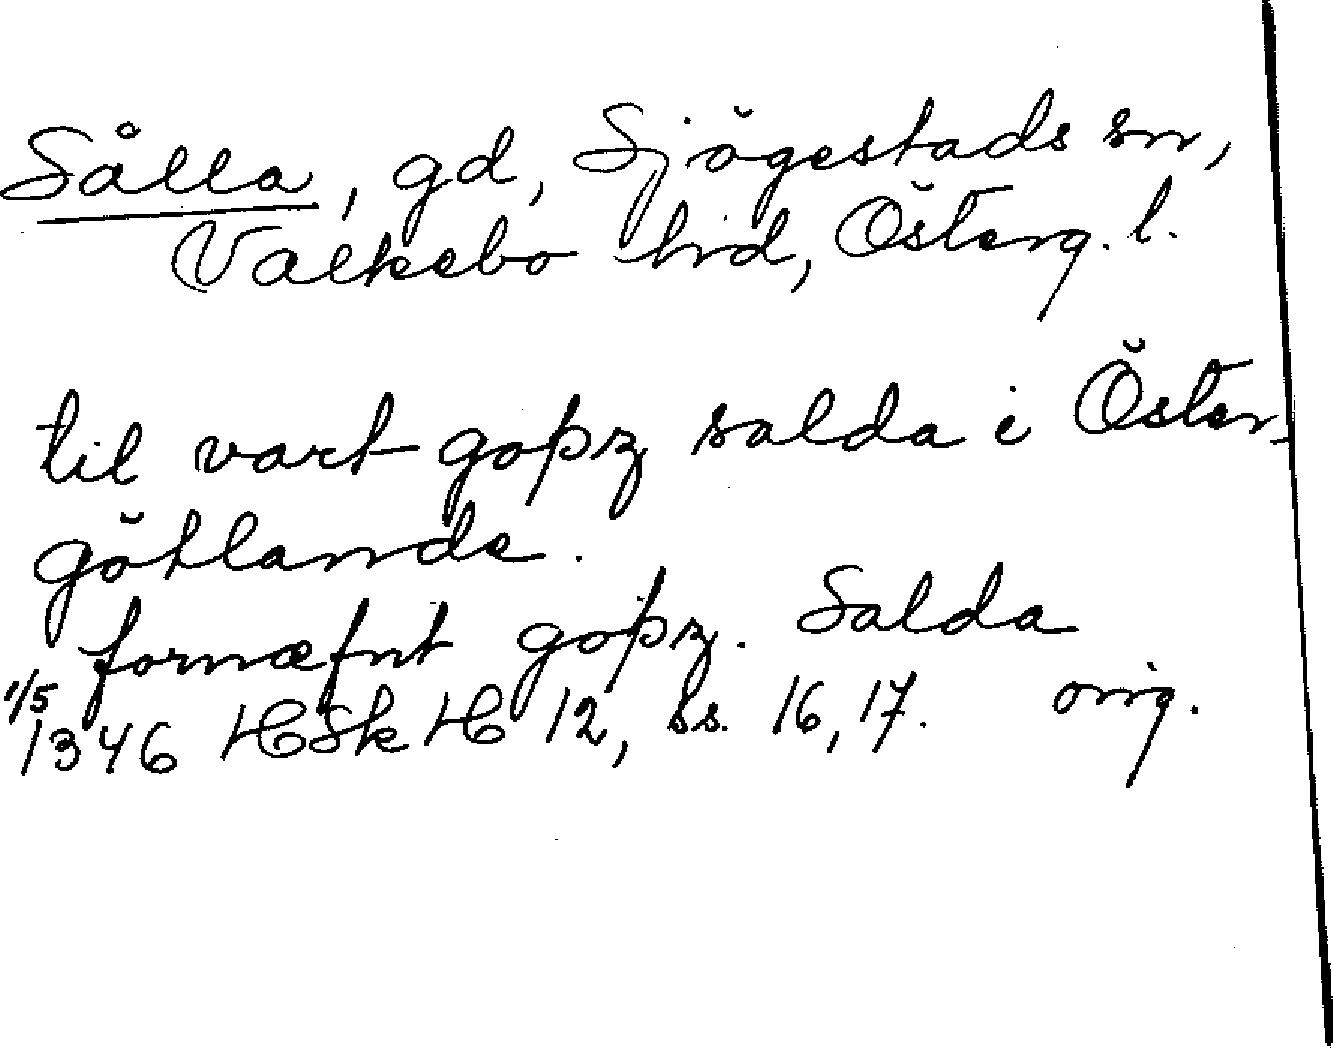 Sålla, gd, Sjögestads sn,
Valkebo hd, Österg. l.
til vart goþz salda i Öster-
götlande.
fornæfnt goþz. Salda
1/5 1346 HSk H 12, ss. 16, 17. orig.